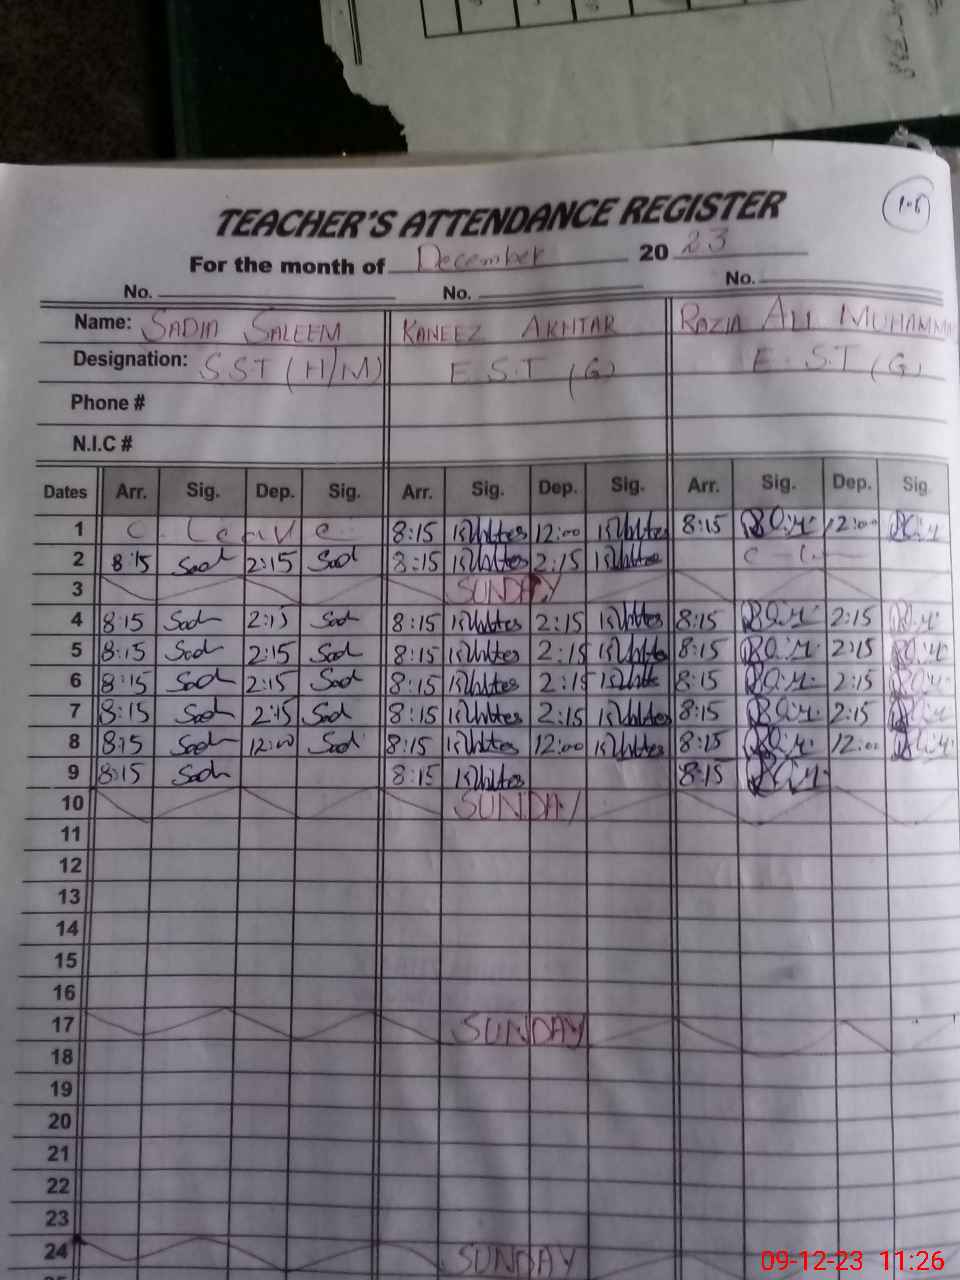 TEACHER'S ATTENDANCE REGISTER
For the month of December 20 23
No. No. No.
Name: SADIA SALEEM KANEEZ AKHTAR RAZIA ALI MUHAMM
Designation: S.S.T (H/M) E.S.T (G) E.S.T (G)
Phone #
N.I.C #
Dates Arr. Sig. Dep. Sig. Arr. Sig. Dep. Sig. Arr. Sig. Dep. Sig.
1 C. Leave 8:15 12:00 8:15 12:00
2 8:15 Sad 2:15 Sad 8:15 2:15
3 SUNDAY
4 8:15 Sad 2:15 Sad 8:15 2:15 8:15 2:15
5 8:15 Sad 2:15 Sad 8:15 2:15 8:15 2:15
6 8:15 Sad 2:15 Sad 8:15 2:15 8:15 2:15
7 8:15 Sad 2:15 Sad 8:15 2:15 8:15 2:15
8 8:15 Sad 12:00 Sad 8:15 12:00 8:15 12:00
9 8:15 Sad 8:15 8:15
10 SUNDAY
11
12
13
14
15
16
17 SUNDAY
18
19
20
21
22
23
24 SUNDAY
09-12-23 11:26